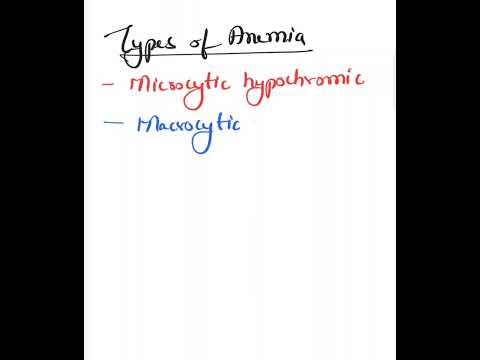 Types of Anemia
- Microcytic hypochromic
- Macrocytic